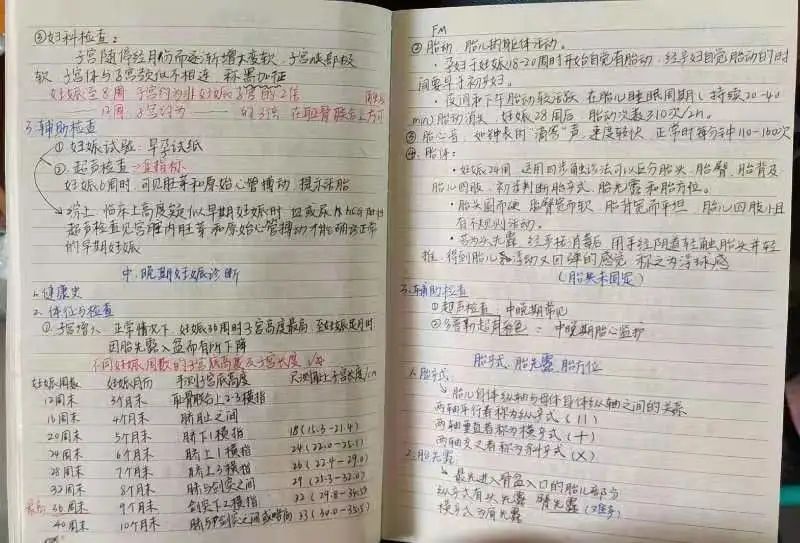 ③妇科检查：
子宫随停经月份而逐渐增大变软，子宫峡部极
软，子宫体与子宫颈似不相连，称黑加征
妊娠至8周，子宫约为非妊娠子宫的2倍
12周，子宫约为 —— 的3倍，在耻骨联合上方可
3.辅助检查
①妊娠试验：早孕试纸
②超声检查→金指标
妊娠6周时，可见胚芽和原始心管搏动，提示活胎
综上，临床上高度疑似早期妊娠时，血或尿
超声检查见宫腔内胚芽和原始心管搏动才能确诊正常
的早期妊娠
中、晚期妊娠诊断
1.健康史
2.体征与检查
①子宫增大，正常情况下，妊娠36周时子宫高度最高，至妊娠足月时
因胎先露入盆而有所下降
不同妊娠周数的子宫底高度及子宫长度
妊娠周数 妊娠月份 手测子宫底高度 尺测耻上子宫长度/cm
12周末 3个月末 耻骨联合上2-3横指
16周末 4个月末 脐耻之间
20周末 5个月末 脐下1横指 18(15.3-21.4)
24周末 6个月末 脐上1横指 24(22.0-25.1)
28周末 7个月末 脐上3横指 26(22.4-29.0)
32周末 8个月末 脐与剑突之间 29(25.3-32.0)
最高 36周末 9个月末 剑突下2横指 32(29.8-34.5)
40周末 10个月末 脐与剑突之间或略高 33(30.0-35.3)
FM
②胎动：胎儿的躯体活动。
·孕妇于妊娠18-20周时开始自觉有胎动，经孕妇自觉胎动的时
间要早于初孕妇。
·夜间和下午胎动较活跃，在胎儿睡眠周期（持续20-40
min）胎动消失，妊娠28周后，胎动次数≥10次/2h。
③胎心音：如钟表的"滴答"声，速度较快，正常时每分钟110-160次
④胎体：
·妊娠24周，运用四步触诊法可以区分胎头、胎臀、胎背及
胎儿四肢，初步判断胎产式、胎先露和胎方位。
·胎头圆而硬，胎臀宽而软，胎背宽而平坦，胎儿四肢小且
有不规则活动。
·若为头先露，经手指消毒后，用手经阴道轻触胎头并轻
推，得到胎儿浮动又回弹的感觉，称之为浮球感
（胎头未固定）
3.辅助检查
①超声检查：中晚期常见
②多普勒超声：中晚期胎心监护
胎产式、胎先露、胎方位
1.胎产式
胎儿身体纵轴与母体身体纵轴之间的关系
两轴平行者称为纵产式（||）
两轴垂直者称为横产式（十）
两轴交叉者称为斜产式（X）
2.胎先露
最先进入骨盆入口的胎儿部分
纵产式有头先露、臀先露
横产式为肩先露